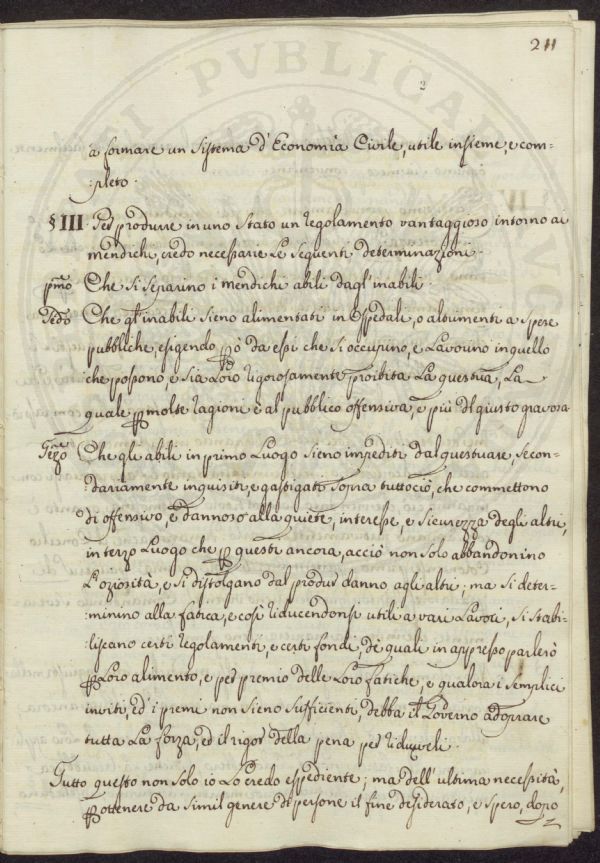 211
2
a formare un Sistema d'Economia Civile, utile insieme, e com=
:pleto.
§ III Per produrre in uno Stato un regolamento vantaggioso intorno ai
mendichi, credo necessarie Le Seguenti determinazioni.
p.mo Che si Separino i mendichi abili dagl'inabili.
Che gl'inabili Sieno alimentati in Ospedali, o altrimenti a Spese
pubbliche, esigendo però da essi che Si occupino, e Lavorino in quello
che possono, e Sia Loro rigorosamente proibita La questua, La
quale per molte ragioni è al pubblico offensiva, e più del giusto gravosa
Che gli abili in primo Luogo Sieno impediti dal questuare, Secon=
:dariamente inquisiti, e gastigati Sopra tuttociò, che commettono
di offensivo, e dannoso alla quiete, interesse, e Sicurezza degli altri,
in terzo Luogo che per questi ancora, acciò non Solo abbandonino
L'oziosità, e Si distolgano dal produr danno agli altri; ma Si deter=
:minino alla fatica, e così riducendonsi utili a vari Lavori, Si Stabi=
:liscano certi regolamenti, e certi fondi, de quali in appresso parlerò
per Loro alimento, e per premio delle Loro fatiche, e qualora i Semplici
inviti, ed i premi non Sieno Sufficienti, debba il Governo adoprare
tutta La forza, ed il rigor della pena per ridurveli.
Tutto questo non Solo io Lo credo espediente; ma dell'ultima necessità,
per ottenere da Simil genere di persone il fine desiderato, e Spero, dopo